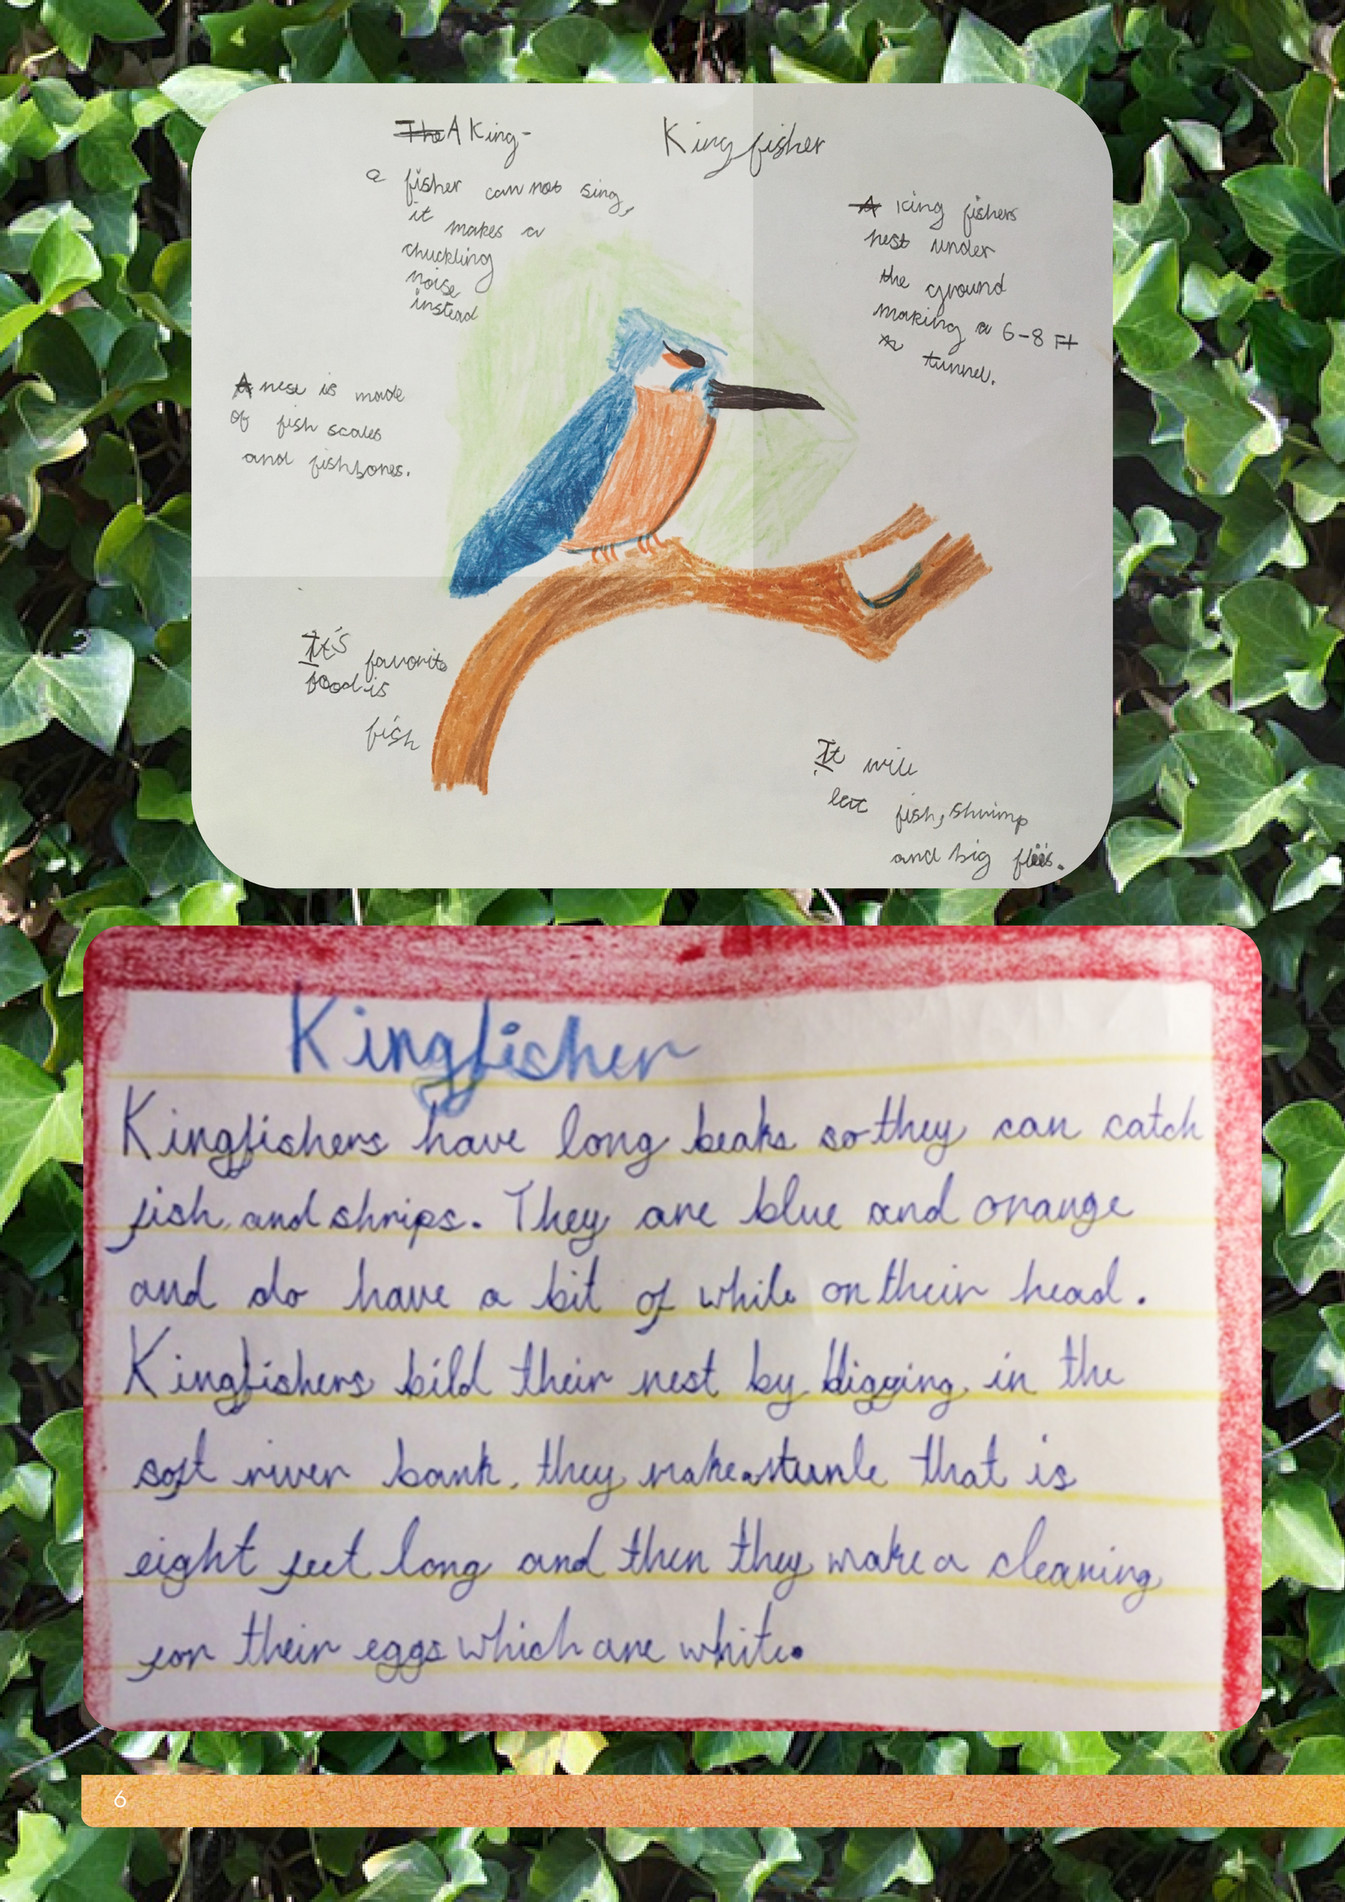 Kingfisher
The A King-
a fisher can not sing,
it makes a
chuckling
noise
instead
A king fishers
nest under
the ground
making a 6-8 Ft
tunnel.
A nest is made
of fish scales
and fishbones.
It's favorite
food is
fish
It will
eat fish, shrimp
and big flies.
Kingfisher
Kingfishers have long beaks so they can catch
fish, and shrips. They are blue and orange
and do have a bit of while on their head.
Kingfishers bild their nest by digging in the
soft river bank, they make a tunle that is
eight feet long and then they make a clearing
for their eggs which are white.
6